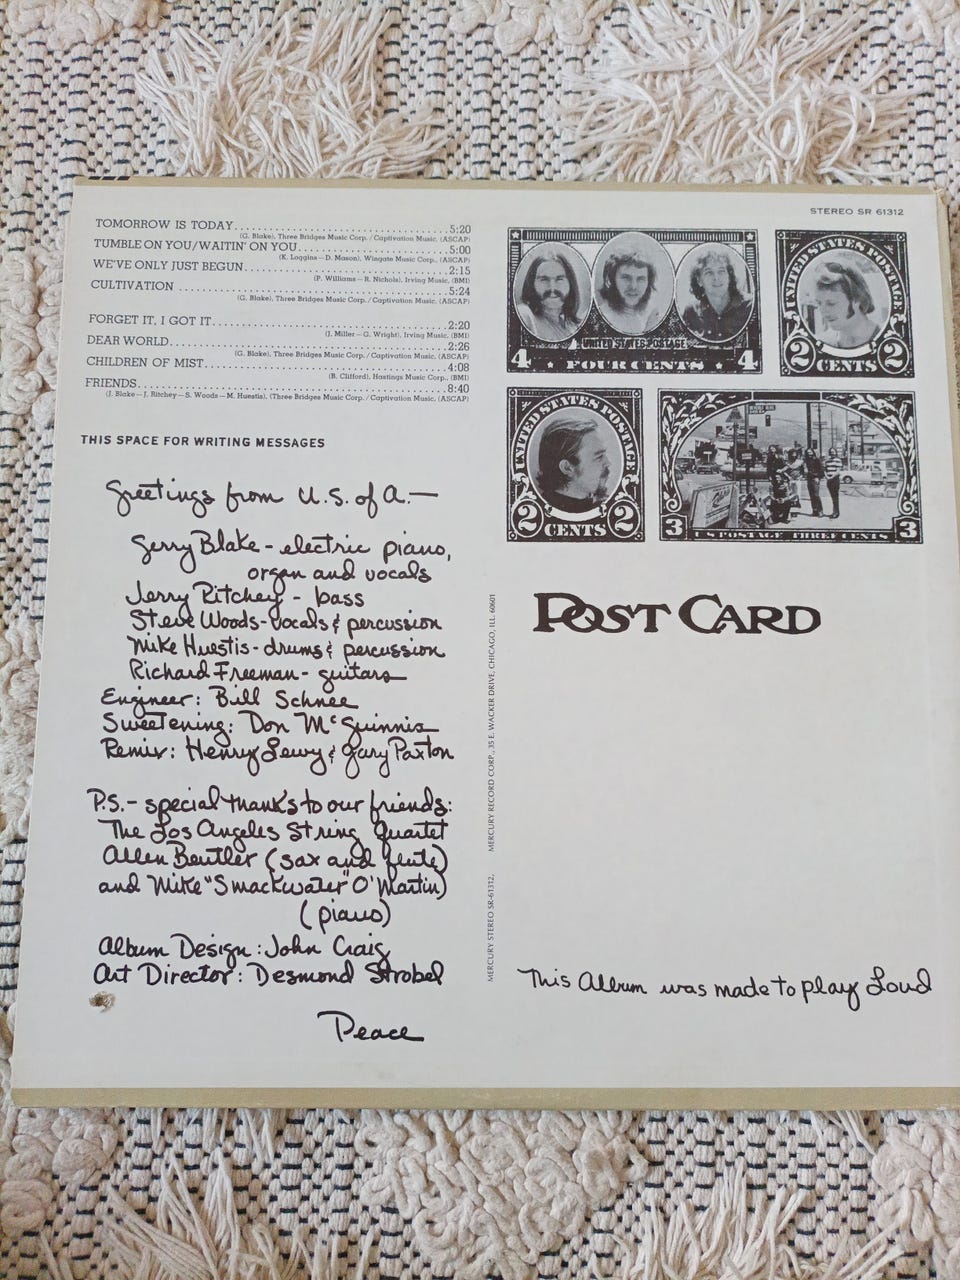 STEREO SR 61312
TOMORROW IS TODAY........................................5:20
(G. Blake), Three Bridges Music Corp./Captivation Music, (ASCAP)
TUMBLE ON YOU/WAITIN' ON YOU.............................5:00
(K. Loggins—D. Mason), Wingate Music Corp., (ASCAP)
WE'VE ONLY JUST BEGUN....................................2:15
(P. Williams—R. Nichols), Irving Music, (BMI)
CULTIVATION..............................................5:24
(G. Blake), Three Bridges Music Corp./Captivation Music, (ASCAP)
FORGET IT, I GOT IT......................................2:20
(J. Miller—G. Wright), Irving Music, (BMI)
DEAR WORLD...............................................2:26
(G. Blake), Three Bridges Music Corp./Captivation Music, (ASCAP)
CHILDREN OF MIST.........................................4:08
(B. Clifford), Hastings Music Corp., (BMI)
FRIENDS..................................................8:40
(J. Blake—J. Ritchey—S. Woods—M. Huestis), (Three Bridges Music Corp./Captivation Music, (ASCAP)
THIS SPACE FOR WRITING MESSAGES
Greetings from U.S. of A.—
Gerry Blake - electric piano,
organ and vocals
Jerry Ritchey - bass
Steve Woods - vocals & percussion
Mike Huestis - drums & percussion
Richard Freeman - guitars
Engineer: Bill Schnee
Sweetening: Don McGuinnis
Remix: Henry Lewy & Gary Paxton
P.S. - special thanks to our friends:
The Los Angeles String Quartet
Allen Beutler (sax and flute)
and Mike "Smackwater" O'Martin)
(piano)
Album Design: John Craig
Art Director: Desmond Strobel
Peace
UNITED STATES POSTAGE
4 FOUR CENTS 4
UNITED STATES POSTAGE
2 CENTS 2
UNITED STATES POSTAGE
2 CENTS 2
3 U S POSTAGE THREE CENTS 3
POST CARD
MERCURY STEREO SR-61312, MERCURY RECORD CORP., 35 E. WACKER DRIVE, CHICAGO, ILL. 60601
This Album was made to play Loud